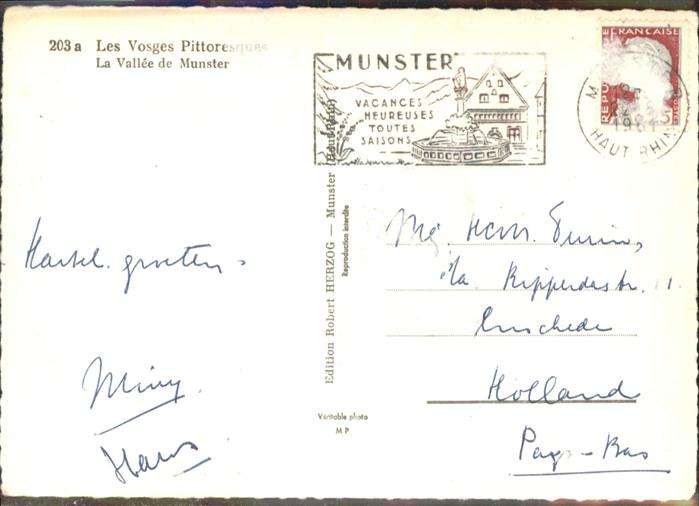 203 a Les Vosges Pittoresques
La Vallée de Munster
MUNSTER
VACANCES
HEUREUSES
TOUTES
SAISONS
REPUBLIQUE FRANÇAISE
1961
HAUT RHIN
Edition Robert HERZOG — Munster (Haut-Rhin)
Reproduction interdite
Véritable photo
M P
Hartel. groeten
Miny.
Hans
Mej.
Ripperdastr. 11
Enschede
Holland
Pays-Bas